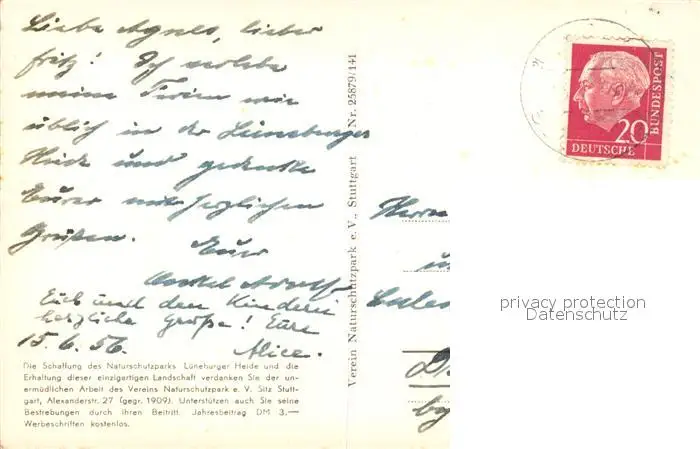 Liebe Agnes, lieber
Fritz! Ich verlebe
meine Ferien wie
üblich in der Lüneburger
Heide und gedenke
Eurer mit herzlichen
Grüßen. Euer
Onkel Adolf
Euch und den Kindern
herzliche Grüße! Eure
15.6.56. Alice.
Die Schaffung des Naturschutzparks Lüneburger Heide und die
Erhaltung dieser einzigartigen Landschaft verdanken Sie der un-
ermüdlichen Arbeit des Vereins Naturschutzpark e. V. Sitz Stutt-
gart, Alexanderstr. 27 (gegr. 1909). Unterstützen auch Sie seine
Bestrebungen durch Ihren Beitritt. Jahresbeitrag DM 3.—
Werbeschriften kostenlos.
Verein Naturschutzpark e. V., Stuttgart Nr. 25879/141
20
DEUTSCHE
BUNDESPOST
Herrn
privacy protection
Datenschutz